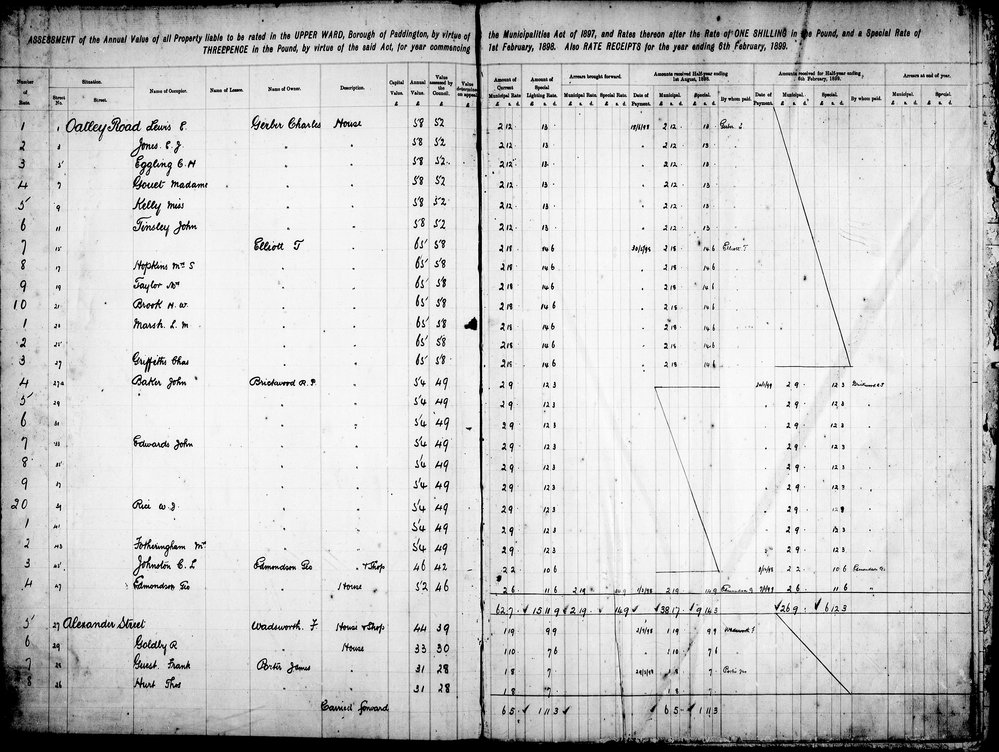 ASSESSMENT of the Annual Value of all Property liable to be rated in the UPPER WARD, Borough of Paddington, by virtue of the Municipalities Act of 1897, and Rates thereon after the Rate of ONE SHILLING in the Pound, and a Special Rate of
THREEPENCE in the Pound, by virtue of the said Act, for year commencing 1st February, 1898. Also RATE RECEIPTS for the year ending 6th February, 1899.
Number of Rate. Situation. Street No. Street. Name of Occupier. Name of Lessee. Name of Owner. Description. Capital Value. £ Annual Value. £ Value assessed by the Council. £ Value determined on appeal. Amount of Current Municipal Rate £ s. d. Amount of Special Lighting Rate £ s. d. Arrears brought forward. Municipal Rate. Special Rate. Date of Payment. Amounts received Half-year ending 1st August, 1898. Municipal. Special. By whom paid. Date of Payment. Amounts received for Half-year ending 6th February, 1899. Municipal. Special. By whom paid. Arrears at end of year. Municipal. Special.
1 1 Oatley Road Lewis E. Gerber Charles House 58 52 2 12 13 2 12 13
2 3 Jones E. J. " " 58 52 2 12 13 2 12 13
3 5 Eggling C. H " " 58 52 2 12 13 2 12 13
4 7 Gouet Madame " " 58 52 2 12 13 2 12 13
5 9 Kelly Miss " " 58 52 2 12 13 2 12 13
6 11 Tinsley John " " 58 52 2 12 13 2 12 13
7 15 Elliott T " 65 58 2 18 14 6 2 18 14 6 Elliott T
8 17 Hopkins Mrs S " " 65 58 2 18 14 6 2 18 14 6
9 19 Taylor Mrs " " 65 58 2 18 14 6 2 18 14 6
10 21 Brook H. W. " " 65 58 2 18 14 6 2 18 14 6
1 Marsh. L. M " " 65 58 2 18 14 6 2 18 14 6
2 25 " " 65 58 2 18 14 6 2 18 14 6
3 27 Griffiths Chas " " 65 58 2 18 14 6 2 18 14 6
4 27a Baker John Brickwood R. P. " 54 49 2 9 12 3 2 9 12 3
5 29 " " 54 49 2 9 12 3 2 9 12 3
6 31 " " 54 49 2 9 12 3 2 9 12 3
7 33 Edwards John " " 54 49 2 9 12 3 2 9 12 3
8 35 " " 54 49 2 9 12 3 2 9 12 3
9 " " 54 49 2 9 12 3 2 9 12 3
20 Rice W. J. " " 54 49 2 9 12 3 2 9 12 3
1 41 " " 54 49 2 9 12 3 2 9 12 3
2 43 Fotheringham Mrs " " 54 49 2 9 12 3 2 9 12 3
3 45 Johnston C. L Edmondson Geo " + Shop 46 42 2 2 10 6 2 2 10 6
4 47 Edmondson Geo " House 52 46 2 6 11 6 2 19 14 9 2 19 14 9 2 6 11 6
62 7 15 11 9 2 19 14 9 38 17 9 14 3 26 9 6 12 3
5 27 Alexander Street Wadsworth. F House & Shop 44 39 1 19 9 9 1 19 9 9
6 29 Goldby R " House 33 30 1 10 7 6 1 10 7 6
7 Guest. Frank Porter James " 31 28 1 8 7 1 8 7
8 26 Hurt Thos " " 31 28 1 8 7 1 8 7
Carried forward 6 5 1 11 3 6 5 1 11 3